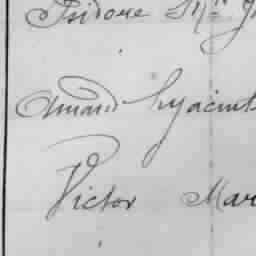 Isidore
Amand Hyacint
Victor Mar